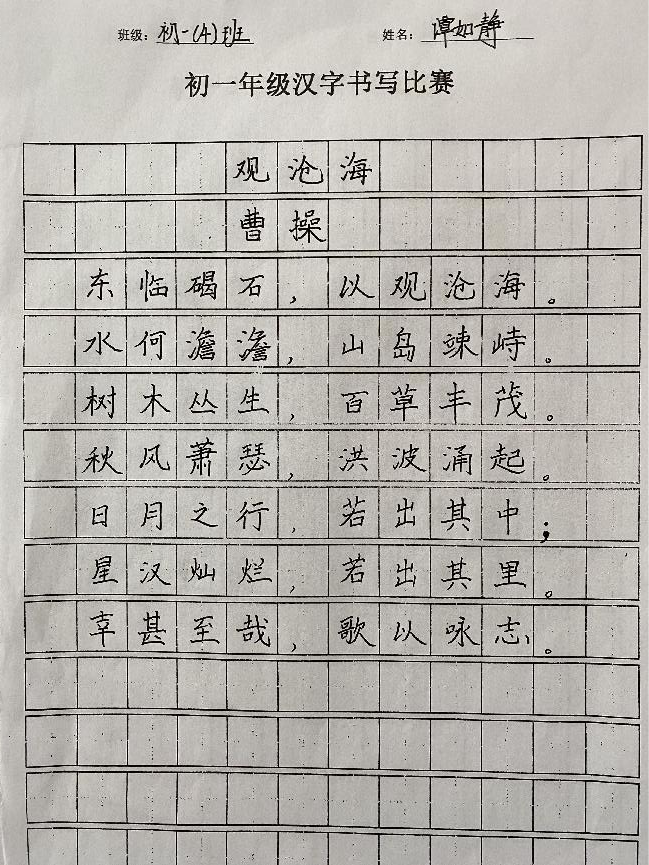 班级：初一(4)班 姓名：谭如静
初一年级汉字书写比赛
观沧海
曹操
东临碣石，以观沧海。
水何澹澹，山岛竦峙。
树木丛生，百草丰茂。
秋风萧瑟，洪波涌起。
日月之行，若出其中；
星汉灿烂，若出其里。
幸甚至哉，歌以咏志。